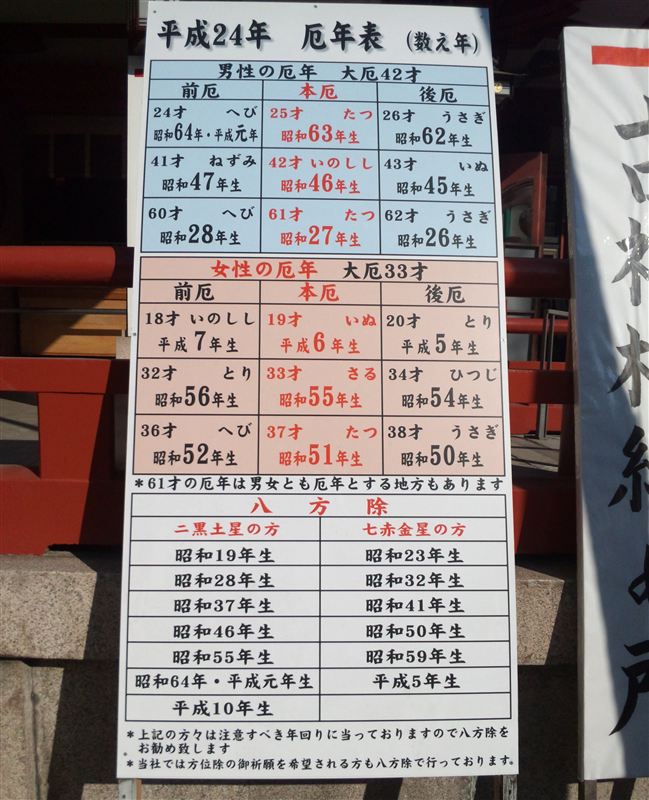 平成24年　厄年表　(数え年)
男性の厄年　大厄42才
前厄　本厄　後厄
24才　へび　25才　たつ　26才　うさぎ
昭和64年・平成元年　昭和63年生　昭和62年生
41才　ねずみ　42才 いのしし　43才　いぬ
昭和47年生　昭和46年生　昭和45年生
60才　へび　61才　たつ　62才　うさぎ
昭和28年生　昭和27年生　昭和26年生
女性の厄年　大厄33才
前厄　本厄　後厄
18才 いのしし　19才　いぬ　20才　とり
平成7年生　平成6年生　平成5年生
32才　とり　33才　さる　34才　ひつじ
昭和56年生　昭和55年生　昭和54年生
36才　へび　37才　たつ　38才　うさぎ
昭和52年生　昭和51年生　昭和50年生
*61才の厄年は男女とも厄年とする地方もあります
八　方　除
二黒土星の方　七赤金星の方
昭和19年生　昭和23年生
昭和28年生　昭和32年生
昭和37年生　昭和41年生
昭和46年生　昭和50年生
昭和55年生　昭和59年生
昭和64年・平成元年生　平成5年生
平成10年生
*上記の方々は注意すべき年回りに当っておりますので八方除を
お勧め致します
*当社では方位除の御祈願を希望される方も八方除で行っております。